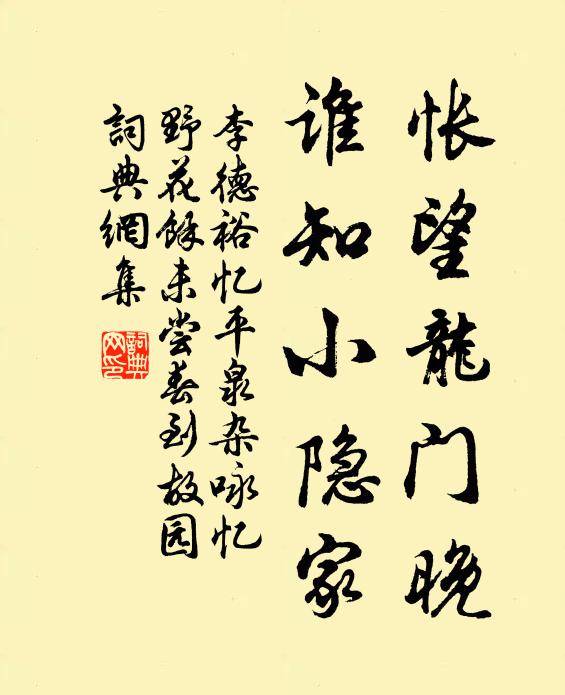 怅望龍门晚
谁知小隐家
李德裕忆平泉杂咏忆
野花馀未尝春到故园
詞典網集
詞典
网印